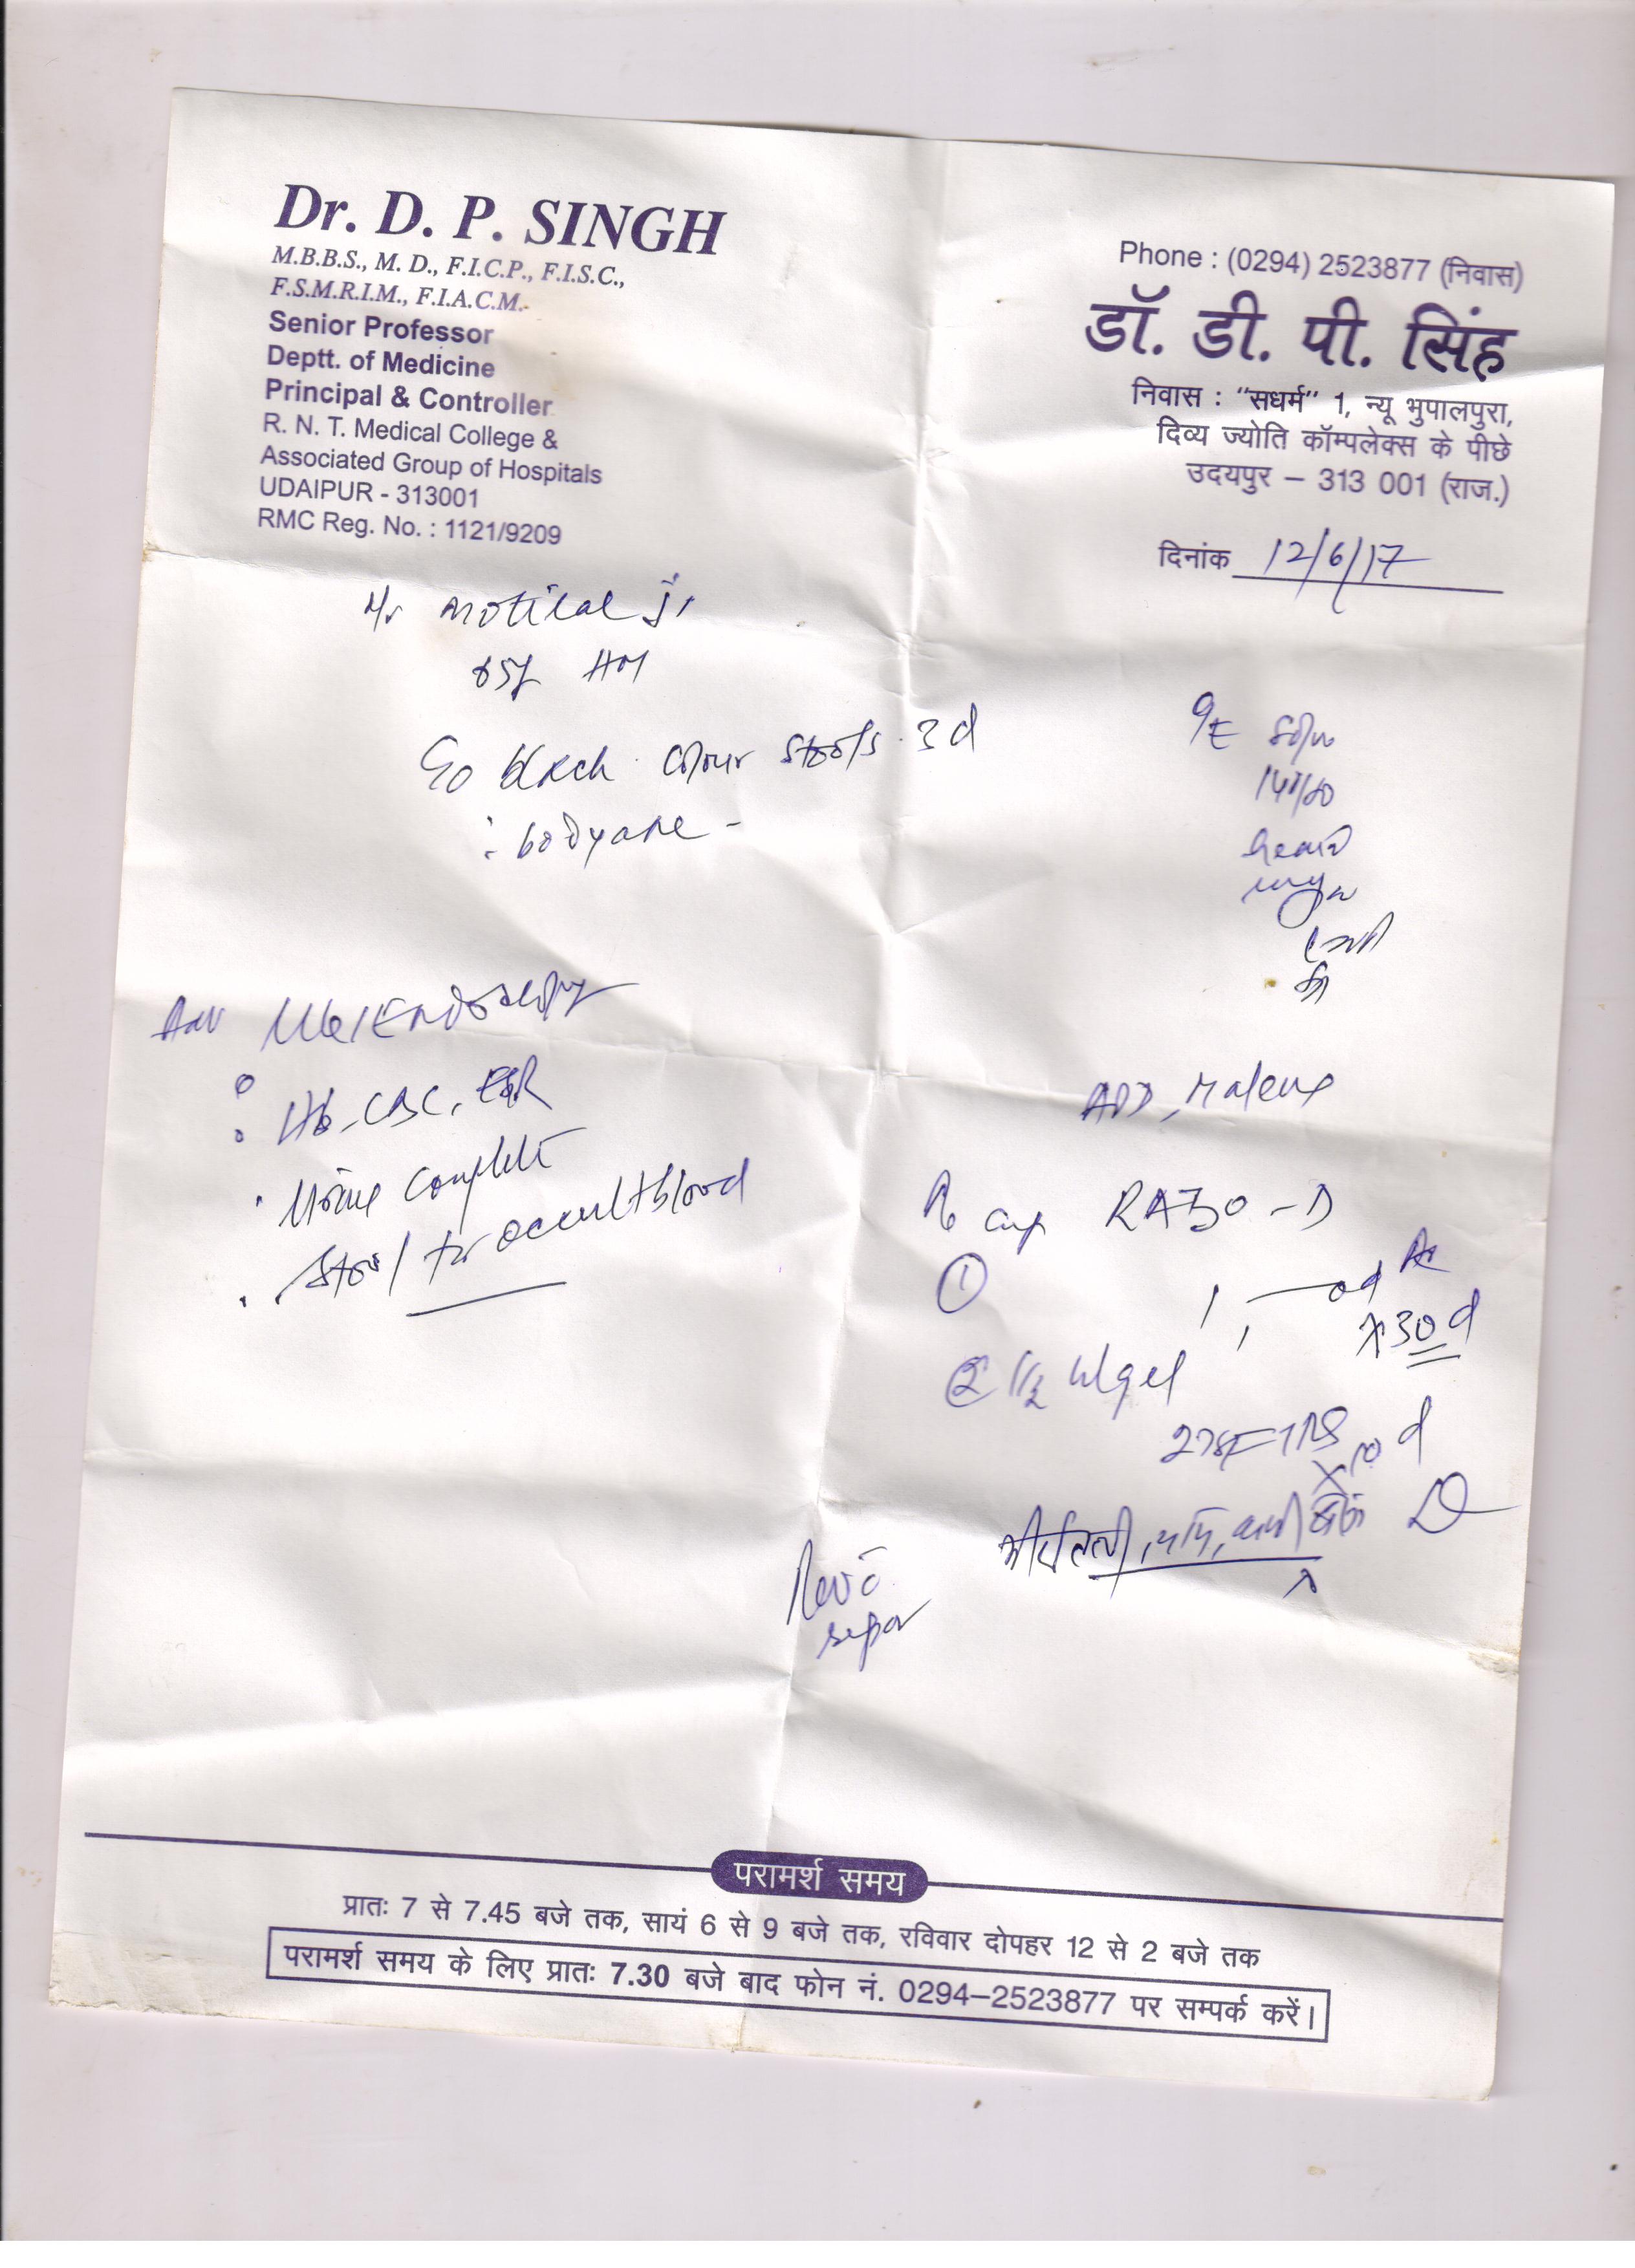 Dr. D. P. SINGH
M.B.B.S., M. D., F.I.C.P., F.I.S.C.,
F.S.M.R.I.M., F.I.A.C.M.
Senior Professor
Deptt. of Medicine
Principal & Controller
R. N. T. Medical College &
Associated Group of Hospitals
UDAIPUR - 313001
RMC Reg. No. : 1121/9209
Phone : (0294) 2523877 (निवास)
डॉ. डी. पी. सिंह
निवास : "सधर्म" 1, न्यू भुपालपुरा,
दिव्य ज्योति कॉम्पलेक्स के पीछे
उदयपुर – 313 001 (राज.)
दिनांक 12/6/17
Mr Motilal ji
65y
C/o black colour stools 3d
O/E
heart
Adv UGI Endoscopy
Hb, CBC, ESR
Urine complete
Stool for occult blood
Rx cap RAZO-D
①
1 od
x 30 d
②
gel
10 d
परामर्श समय
प्रातः 7 से 7.45 बजे तक, सायं 6 से 9 बजे तक, रविवार दोपहर 12 से 2 बजे तक
परामर्श समय के लिए प्रातः 7.30 बजे बाद फोन नं. 0294–2523877 पर सम्पर्क करें।